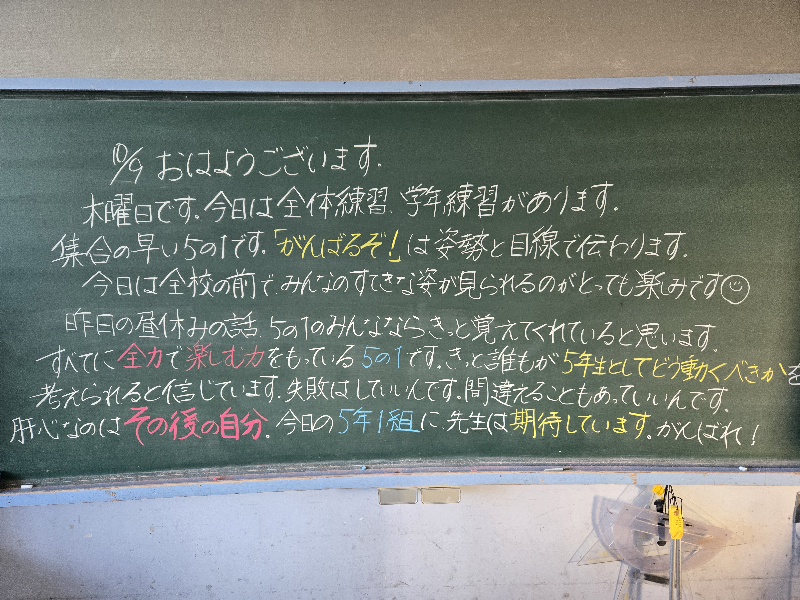 10/9 おはようございます.
木曜日です.今日は全体練習、学年練習があります.
集合の早い5の1です.「がんばるぞ!」は姿勢と目線で伝わります.
今日は全校の前で、みんなのすてきな姿が見られるのがとっても楽しみです☺
昨日の昼休みの話、5の1のみんなならきっと覚えてくれていると思います.
すべてに全力で楽しむ力をもっている5の1です.きっと誰もが5年生としてどう動くべきかを
考えられると信じています.失敗はしていいんです.間違えることもあっていいんです.
肝心なのはその後の自分.今日の5年1組に、先生は期待しています.がんばれ!